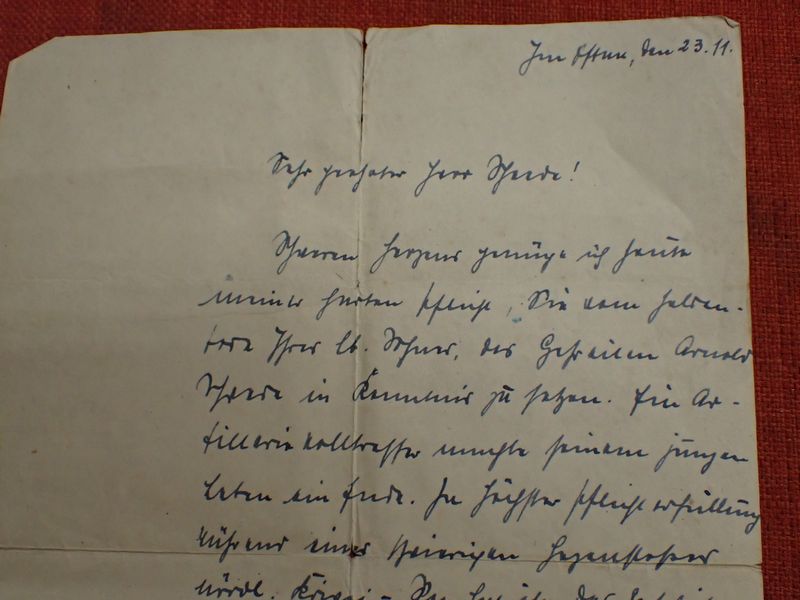 Im Osten, den 23.11.
Sehr geehrter Herr Schrade!
Schweren Herzens genüge ich heute
meiner harten Pflicht, Sie vom Helden-
tode Ihres lb. Sohnes, des Gefreiten Arnold
Schrade in Kenntnis zu setzen. Ein Ar-
tillerievolltreffer machte seinem jungen
Leben ein Ende. In höchster Pflichterfüllung
während eines schwierigen Gegenstosses
nördl. Kriwoi-Rog hat ihn das